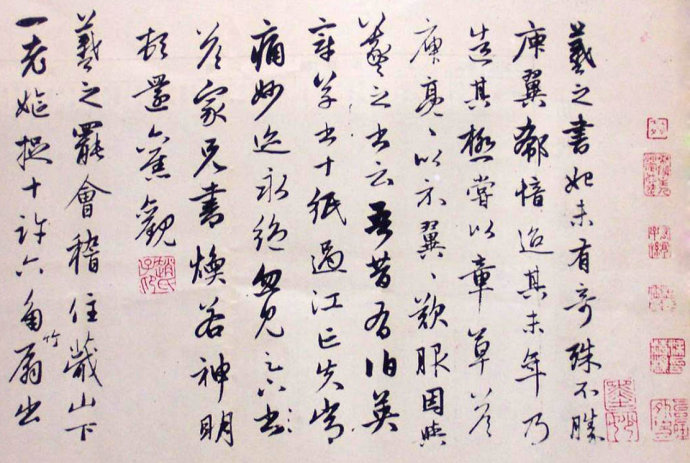 羲之書始未有奇殊不勝
庾翼郗愔迨其末年乃
造其極嘗以章草答
庾亮〻以示翼〻歎服因與
羲之書云吾昔有伯英
章草書十紙過江亡失常
痛妙迹永絕忽見足下書
答家兄書煥若神明
頓還舊觀
羲之罷會稽住蕺山下
一老嫗捉十許六角竹扇出